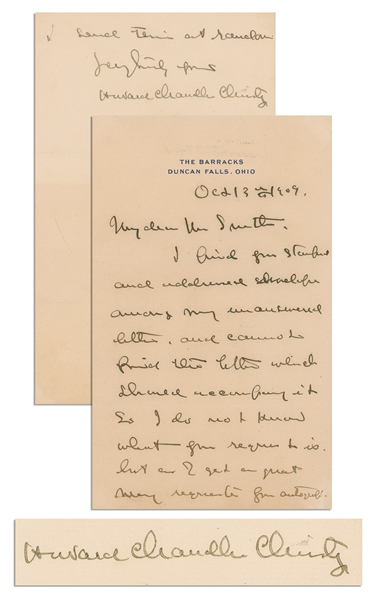 THE BARRACKS
DUNCAN FALLS, OHIO
Oct 13th 1909.
My dear Mr Smith.
I find your stamped
and addressed envelope
among my unanswered
letters, and cannot
find the letter which
should accompany it
So I do not know
what your request is.
but as I get a great
many requests for autographs
I send this at random
Very truly yours
Howard Chandler Christy
Howard Chandler Christy